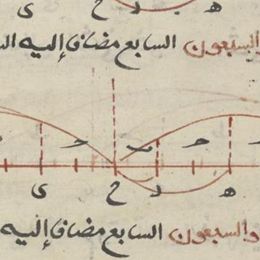 ه ح ى
والسبعون السابع مضاف إليه الس
ح ح
ى ح د ه
والسبعون السابع مضاف إليه